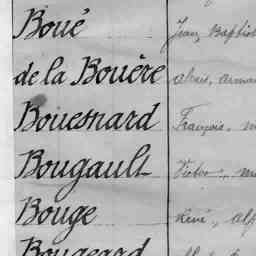 Boué Jean Baptist
de la Bouère Alexis, Arman
Bouesnard François, M
Bougault Victor, M
Bouge René, Alf
Bougeard